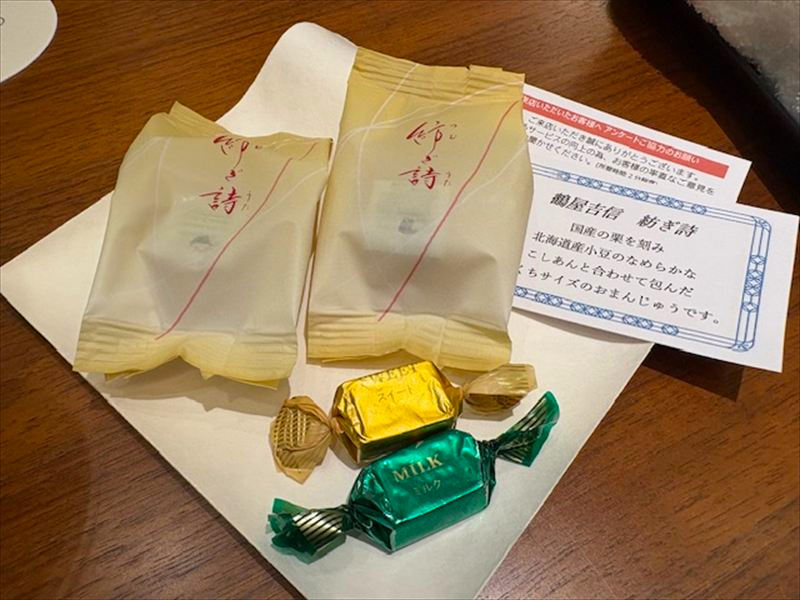 紡ぎ詩
つむ
うた
紡ぎ詩
つむ
うた
来店いただいたお客様へ アンケートご協力のお願い
ご来店いただき誠にありがとうございます。
サービスの向上の為、お客様の率直なご意見を
聞かせください。(所要時間 2分程度)
鶴屋吉信 紡ぎ詩
国産の栗を刻み
北海道産小豆のなめらかな
こしあんと合わせて包んだ
くちサイズのおまんじゅうです。
SWEET
スイート
MILK
ミルク